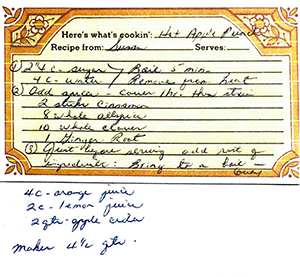 Here's what's cookin': Hot Apple Punch
Recipe from: Susan Serves:
① 2 1/4 c. sugar / Boil 5 min.
4 c. water / Remove from heat
② Add spices - cover 1 hr. then strain
2 sticks cinnamon
8 whole allspice
10 whole cloves
1 Ginger Root
③ Just before serving add rest of
ingredients: Bring to a boil -
4 c - orange juice
2 c - lemon juice
2 qts - apple cider
makes 4 1/2 qts.